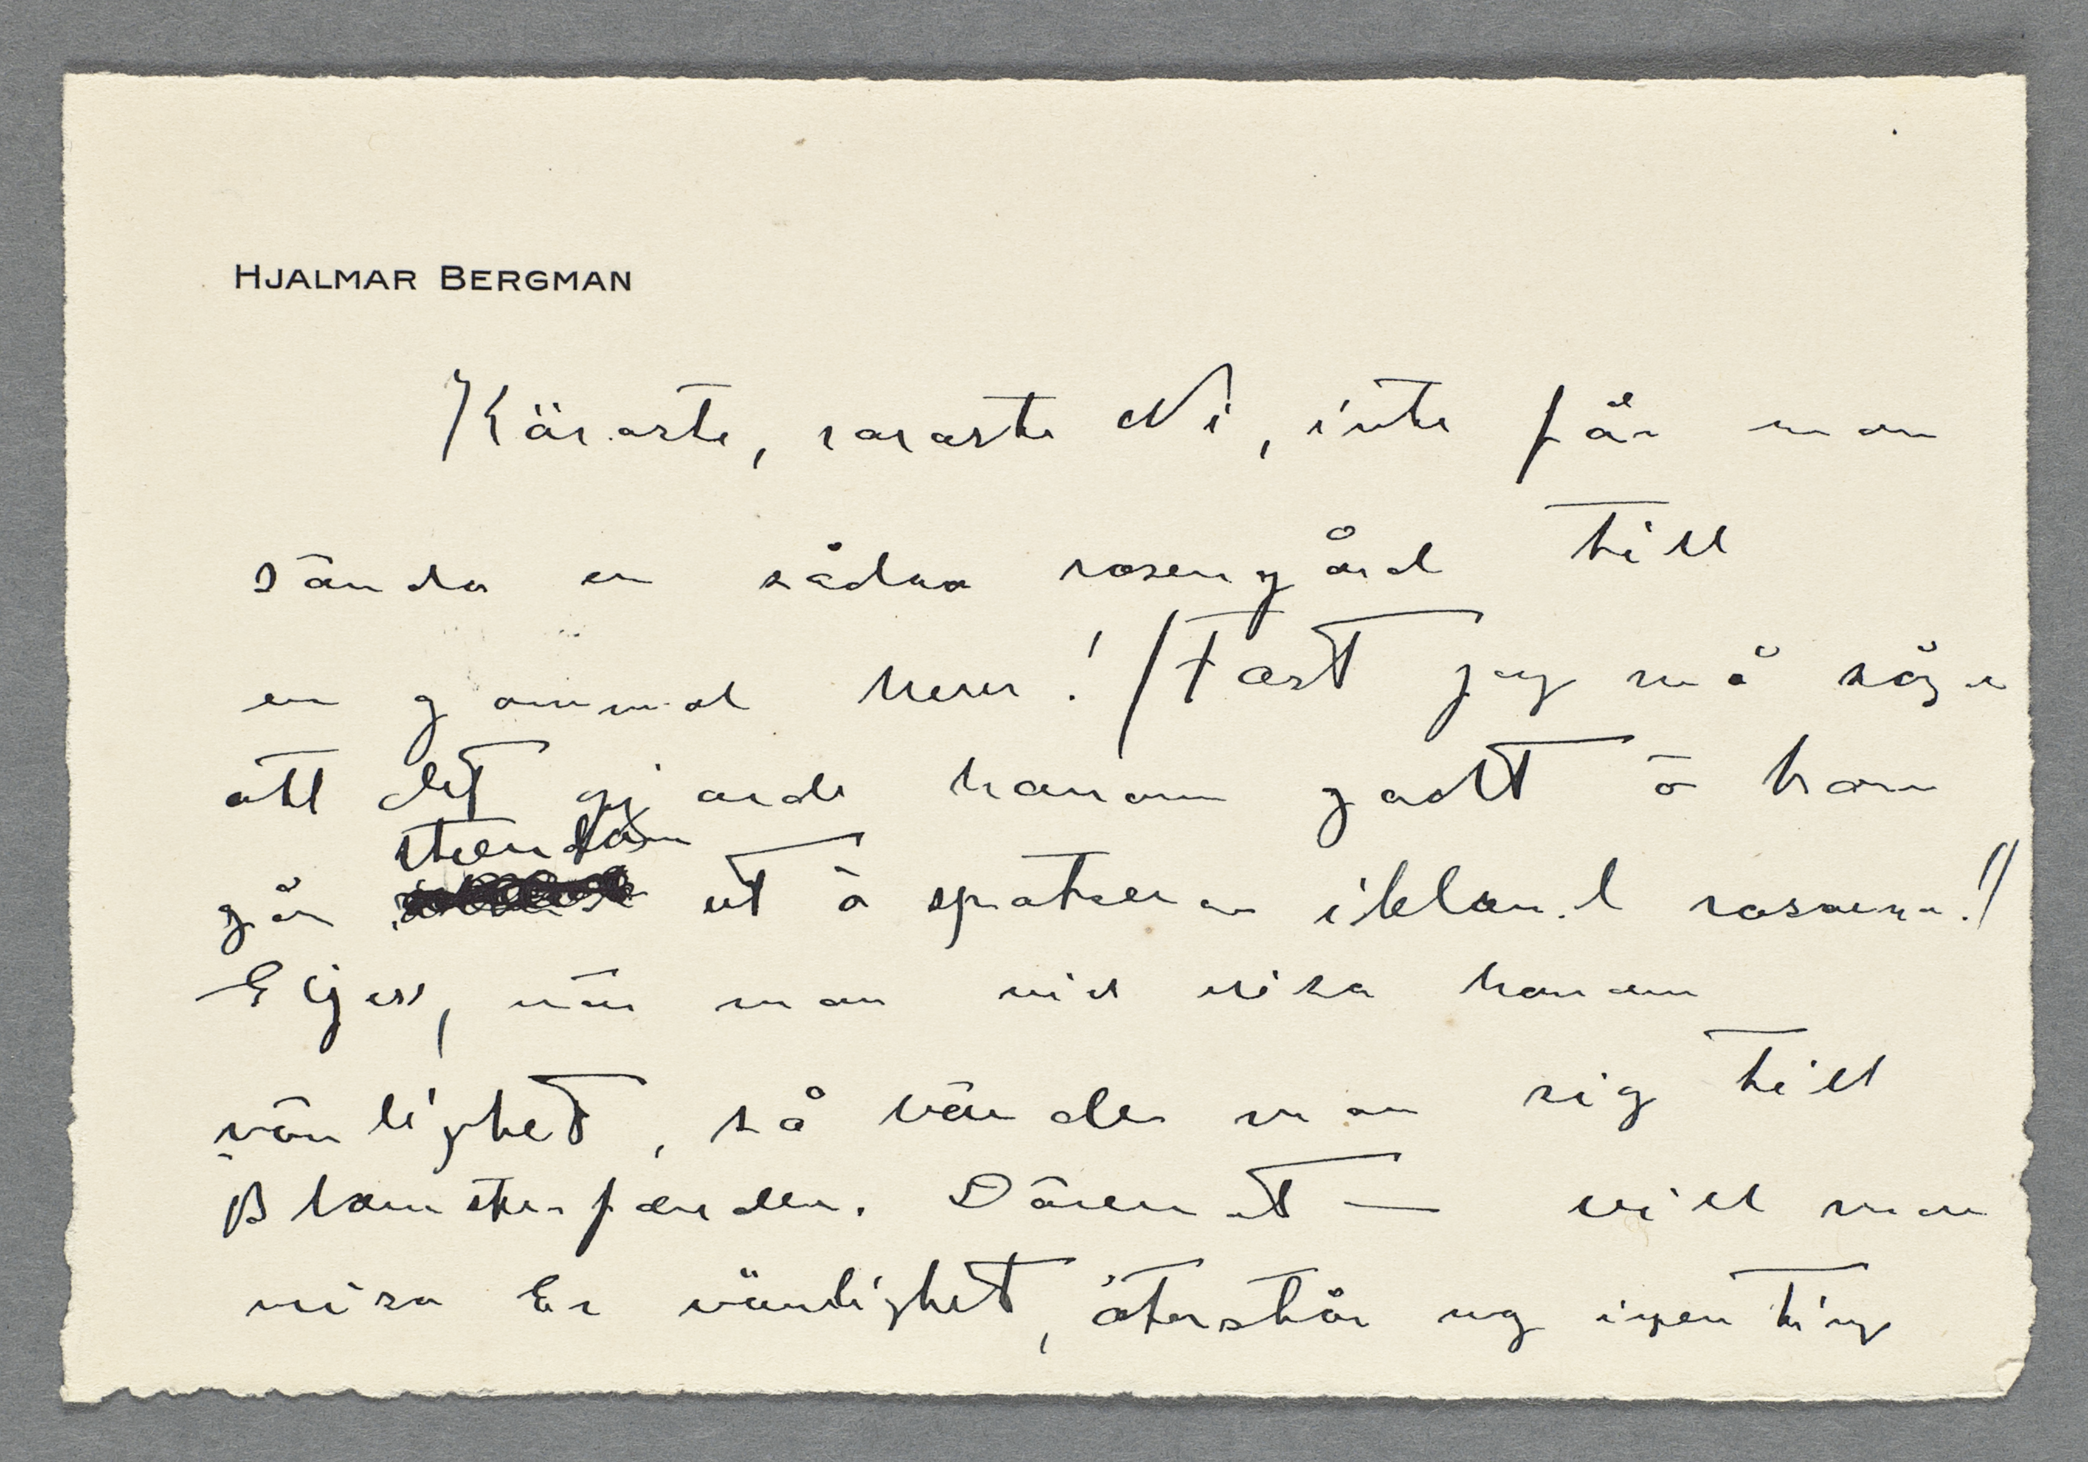 HJALMAR BERGMAN
Käraste, raraste Ni, inte får man
sända en sådan rosengård till
en gammal herre! (Fast jag må säga
att det gjorde honom godt o han
går ut o spatserar iklädd rosorna!)
Eljes, när man vill visa honom
vänlighet, så vänder man sig till
Blomsterfonden. Däremot — vill man
visa Er vänlighet, återstår nog ingenting